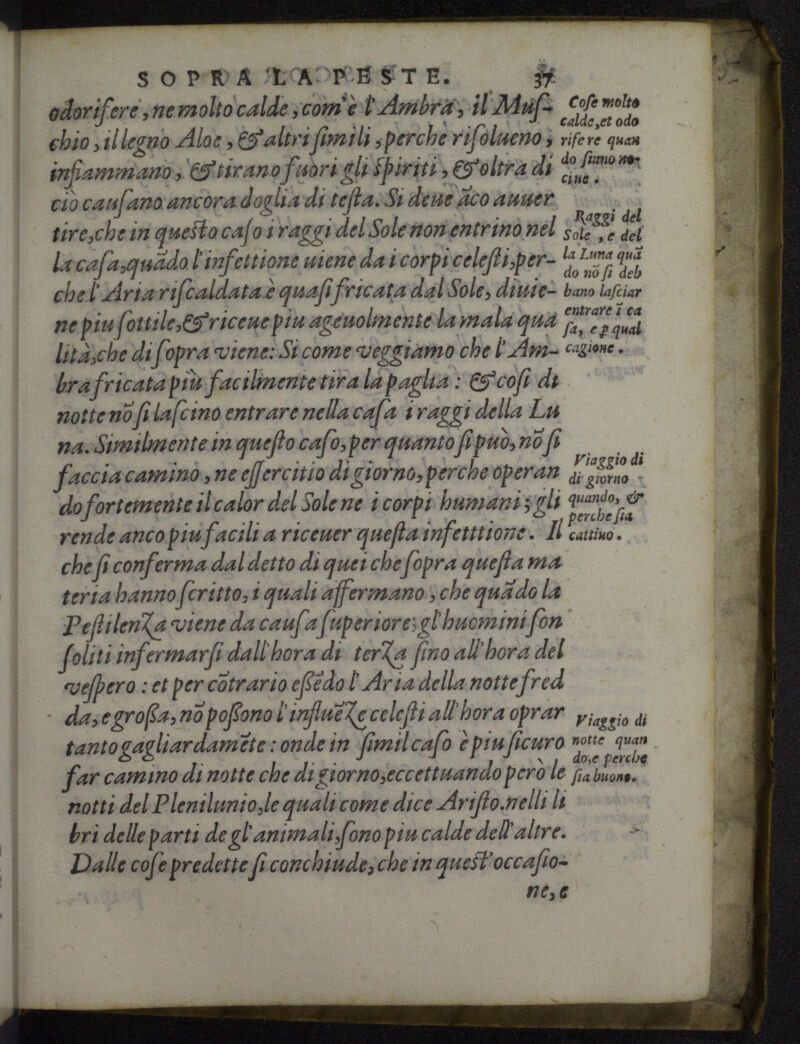 SOPRA LA PESTE. 37
odorifere, ne molto calde, com'è l'Ambra, il Muſ-
chio, il legno Aloe, & altri ſimili, perche riſolueno,
infiammano, & tirano fuori gli ſpiriti, & oltra di
ciò cauſano ancora doglia di teſta. Si deue āco auuer
tire, che in queſto caſo i raggi del Sole non entrino nel
la caſa, quādo l'infettione uiene da i corpi celeſti, per-
che l'Aria riſcaldata è quaſi fricata dal Sole, diuie-
ne piu ſottile, & riceue piu ageuolmente la mala qua
lità, che di ſopra viene: Si come veggiamo che l'Am-
bra fricata più facilmente tira la paglia: & coſi di
notte nō ſi laſcino entrare nella caſa i raggi della Lu
na. Similmente in queſto caſo, per quanto ſi può, nō ſi
faccia camino, ne eſſercitio di giorno, perche operan
do fortemente il calor del Sole ne i corpi humani; gli
rende anco piu facili a riceuer queſta infetttione. Il
che ſi conferma dal detto di quei che ſopra queſta ma
teria hanno ſcritto, i quali affermano, che quādo la
Peſtilenza viene da cauſa ſuperiore; gl'huomini ſon
ſoliti infermarſi dall'hora di terza ſino all'hora del
veſpero: et per cōtrario eſſēdo l'Aria della notte fred
da, e groſſa, nō poſſono l'influēze celeſti all'hora oprar
tanto gagliardamēte: onde in ſimil caſo è piu ſicuro
far camino di notte che di giorno, eccettuando però le
notti del Plenilunio, le quali come dice Ariſto. nelli li
bri delle parti de gl'animali, ſono piu calde dell'altre.
Dalle coſe predette ſi conchiude, che in queſt'occaſio-
ne, e
Coſe molto
calde, et odo
rifere quan
do ſiano no-
ciue.
Raggi del
Sole, e del
la Luna quā
do nō ſi deb
bano laſciar
entrare ī ca
ſa, e ꝑ qual
cagione.
Viaggio di
di giorno
quando, &
perche ſia
cattiuo.
Viaggio di
notte quan
do, e perche
ſia buono.